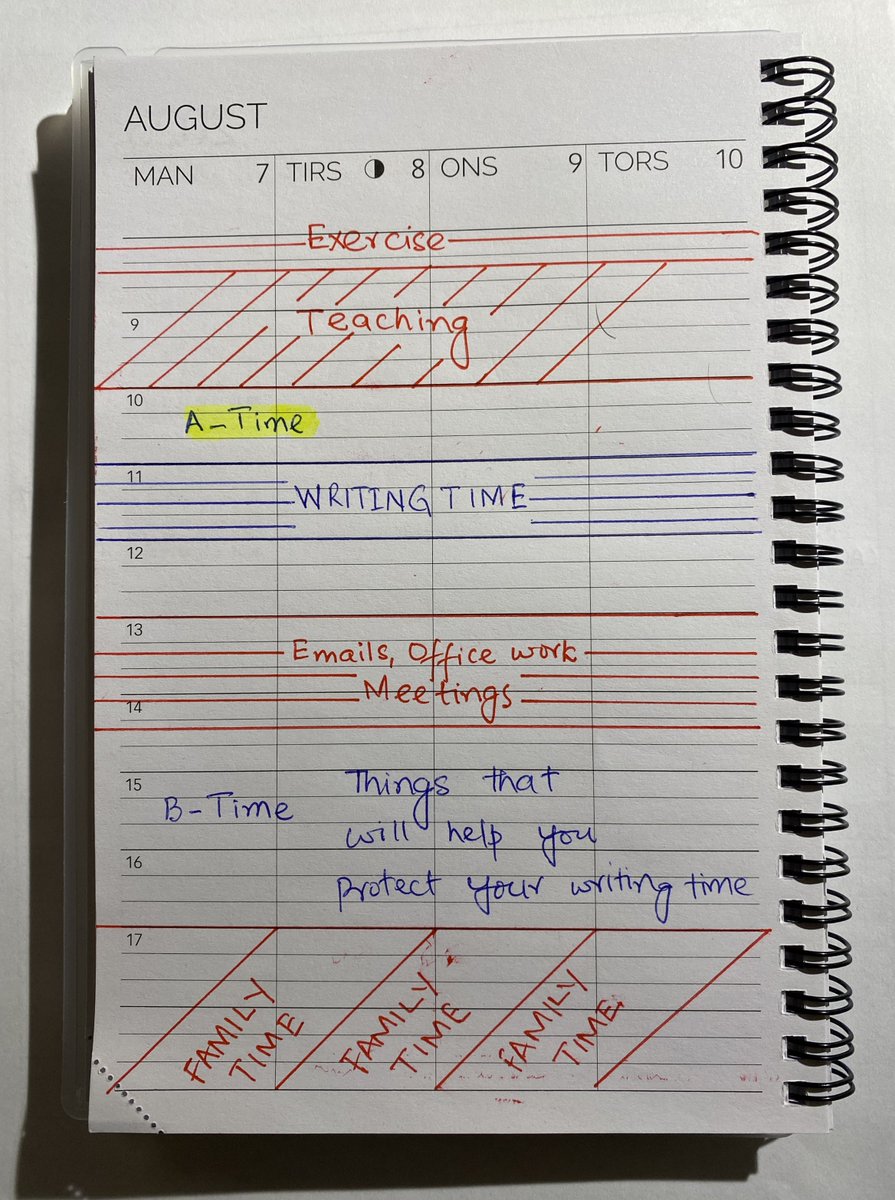 AUGUST
MAN 7 TIRS 8 ONS 9 TORS 10
Exercise
9
Teaching
10
A-Time
11
WRITING TIME
12
13
Emails, Office work
Meetings
14
15
B-Time Things that
will help you
16
Protect your writing time
17
FAMILY TIME
FAMILY TIME
FAMILY TIME